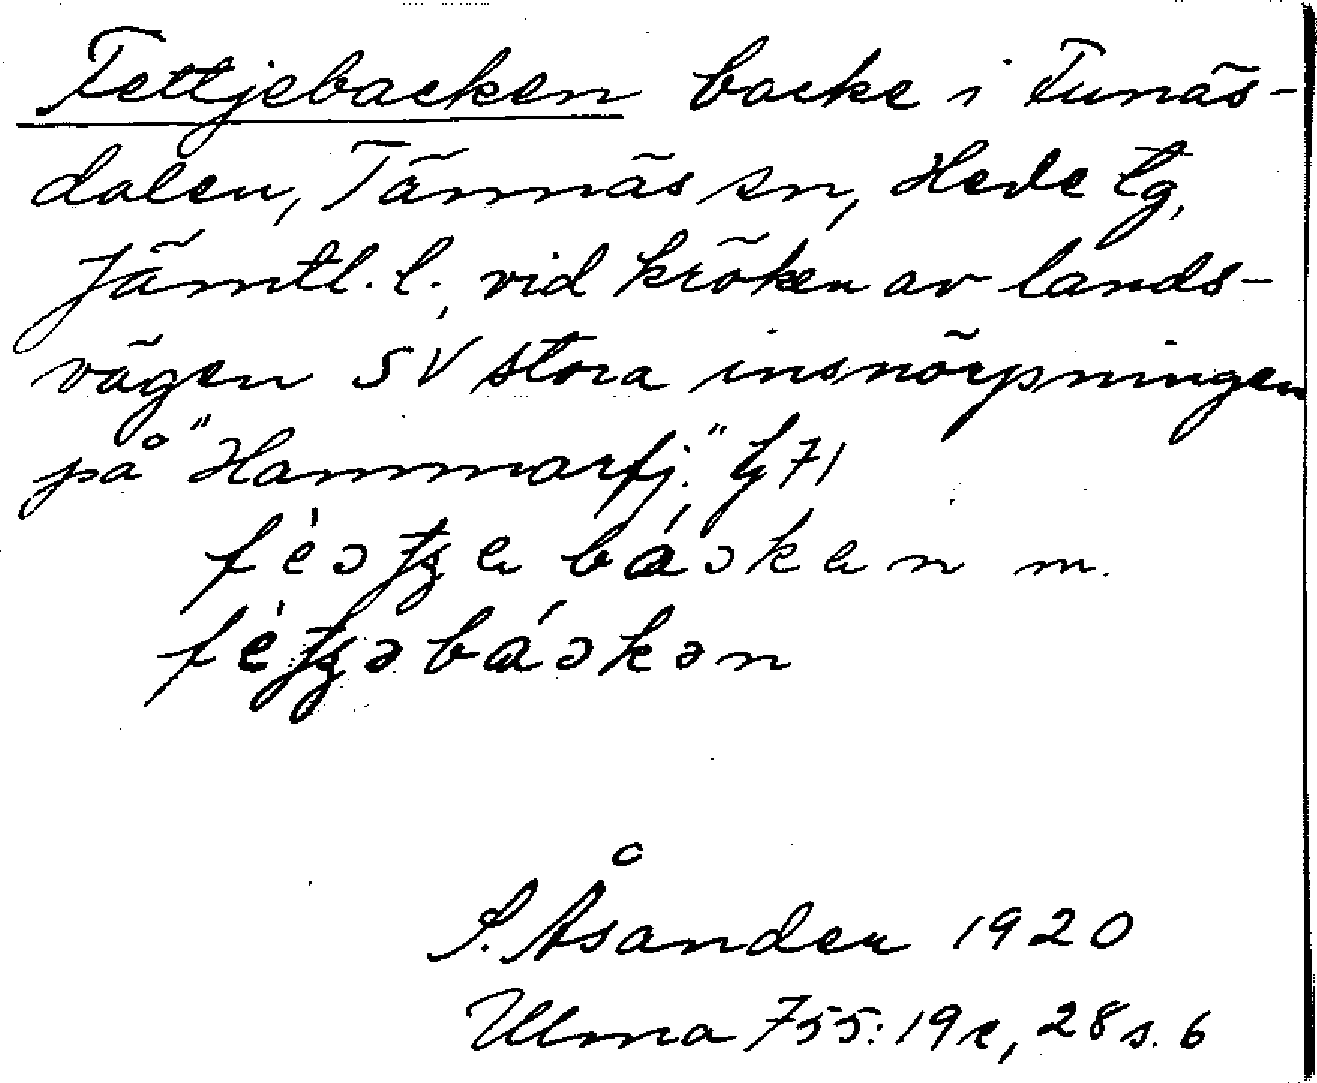 Fettjebacken backe i Funäs-
dalen, Tännäs sn, Hede tg,
Jämtl. l., vid kröken av lands-
vägen SV stora insnörpningen
på "Hammarfj." tj 71
m.
S. Åsander 1920
Ulma 755:19c, 28 s. 6